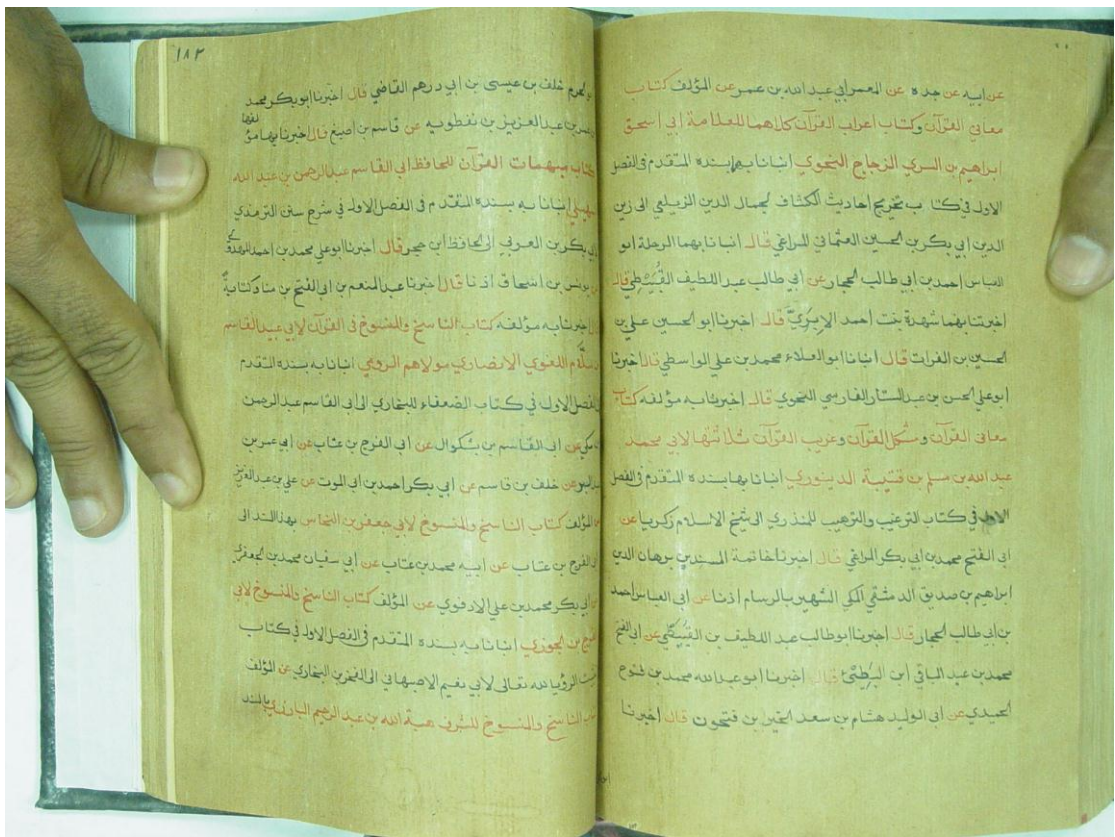 عن ابيه عن جده عن المعمر أبي عبد الله بن عمر عن المؤلف كتاب
معاني القرآن وكتاب اعراب القرآن كلاهما للعلامة ابي اسحق
ابراهيم بن السري الزجاج النحوي انبانا بهما بسنده المتقدم في الفصل
الاول في كتاب تخريج احاديث الكشاف لجمال الدين الزيلعي الى زين
الدين ابي بكر بن الحسين العثماني المراغي قال انبانا بهما الرحلة ابو
العباس احمد بن ابي طالب الحجار عن ابي طالب عبد اللطيف القبيطي قال
اخبرتنا بهما شهدة بنت احمد الإبري قال اخبرنا ابو الحسين علي بن
الحسين بن الفرات قال انبانا ابو العلاء محمد بن علي الواسطي قال اخبرنا
ابو علي الحسن بن عبد الستار الفارسي النحوي قال اخبرنا به مؤلفه كتاب
معاني القرآن ومشكل القرآن وغريب القرآن ثلاثتها لابي محمد
عبد الله بن مسلم بن قتيبة الدينوري انبانا بها بسنده المتقدم في الفصل
الاول في كتاب الترغيب والترهيب للمنذري الى شيخ الاسلام زكريا عن
ابي الفتح محمد بن ابي بكر المراغي قال اخبرنا خاتمة المسندين برهان الدين
ابراهيم بن صديق الدمشقي المكي الشهير بالرسام اذنا عن ابي العباس احمد
بن ابي طالب الحجار قال اخبرنا ابو طالب عبد اللطيف بن القبيطي عن ابي الفتح
محمد بن عبد الباقي ابن البطي قال اخبرنا ابو عبد الله محمد بن فتوح
الحميدي عن ابي الوليد هشام بن سعد الخير بن فتحون قال اخبرنا
١٨٢
الحرم خلف بن عيسى بن ابي درهم القاضي قال اخبرنا ابو بكر محمد
بن عبد العزيز بن نفطويه عن قاسم بن اصبغ قال اخبرنا بها مؤلفها
كتاب مبهمات القرآن للحافظ ابي القاسم عبد الرحمن بن عبد الله
السهيلي انبانا به بسنده المتقدم في الفصل الاول في شرح سنن الترمذي
بكر بن العربي الى الحافظ ابن حجر قال اخبرنا ابو علي محمد بن احمد
يونس بن اسحاق اذنا قال اخبرنا عبد المنعم بن ابي الفتح بن كتابة
اخبرنا به مؤلفه كتاب الناسخ والمنسوخ في القرآن لابي عبيد القاسم
بن سلام اللغوي الانصاري مولاهم الرومي انبانا به بسنده المتقدم
الفصل الاول في كتاب الضعفاء للبخاري الى ابي القاسم عبد الرحمن
مكي عن ابي القاسم بن بشكوال عن ابي الفرج بن عتاب عن ابي عمر بن
عبد البر عن خلف بن قاسم عن ابي بكر احمد بن ابي الموت عن علي بن عبد العزيز
المؤلف كتاب الناسخ والمنسوخ لابي جعفر بن النحاس بهذا السند الى
ابي الفرج بن عتاب عن ابيه محمد بن عتاب عن ابي سفيان محمد بن الجعفري
عن ابي بكر محمد بن علي الادفوي عن المؤلف كتاب الناسخ والمنسوخ لابي
الفرج بن الجوزي انبانا به بسنده المتقدم في الفصل الاول في كتاب
الرؤيا لله تعالى لأبي نعيم الاصبهاني الى الفخر بن البخاري عن المؤلف
كتاب الناسخ والمنسوخ للشرف هبة الله بن عبد الرحيم البارزي بالسند